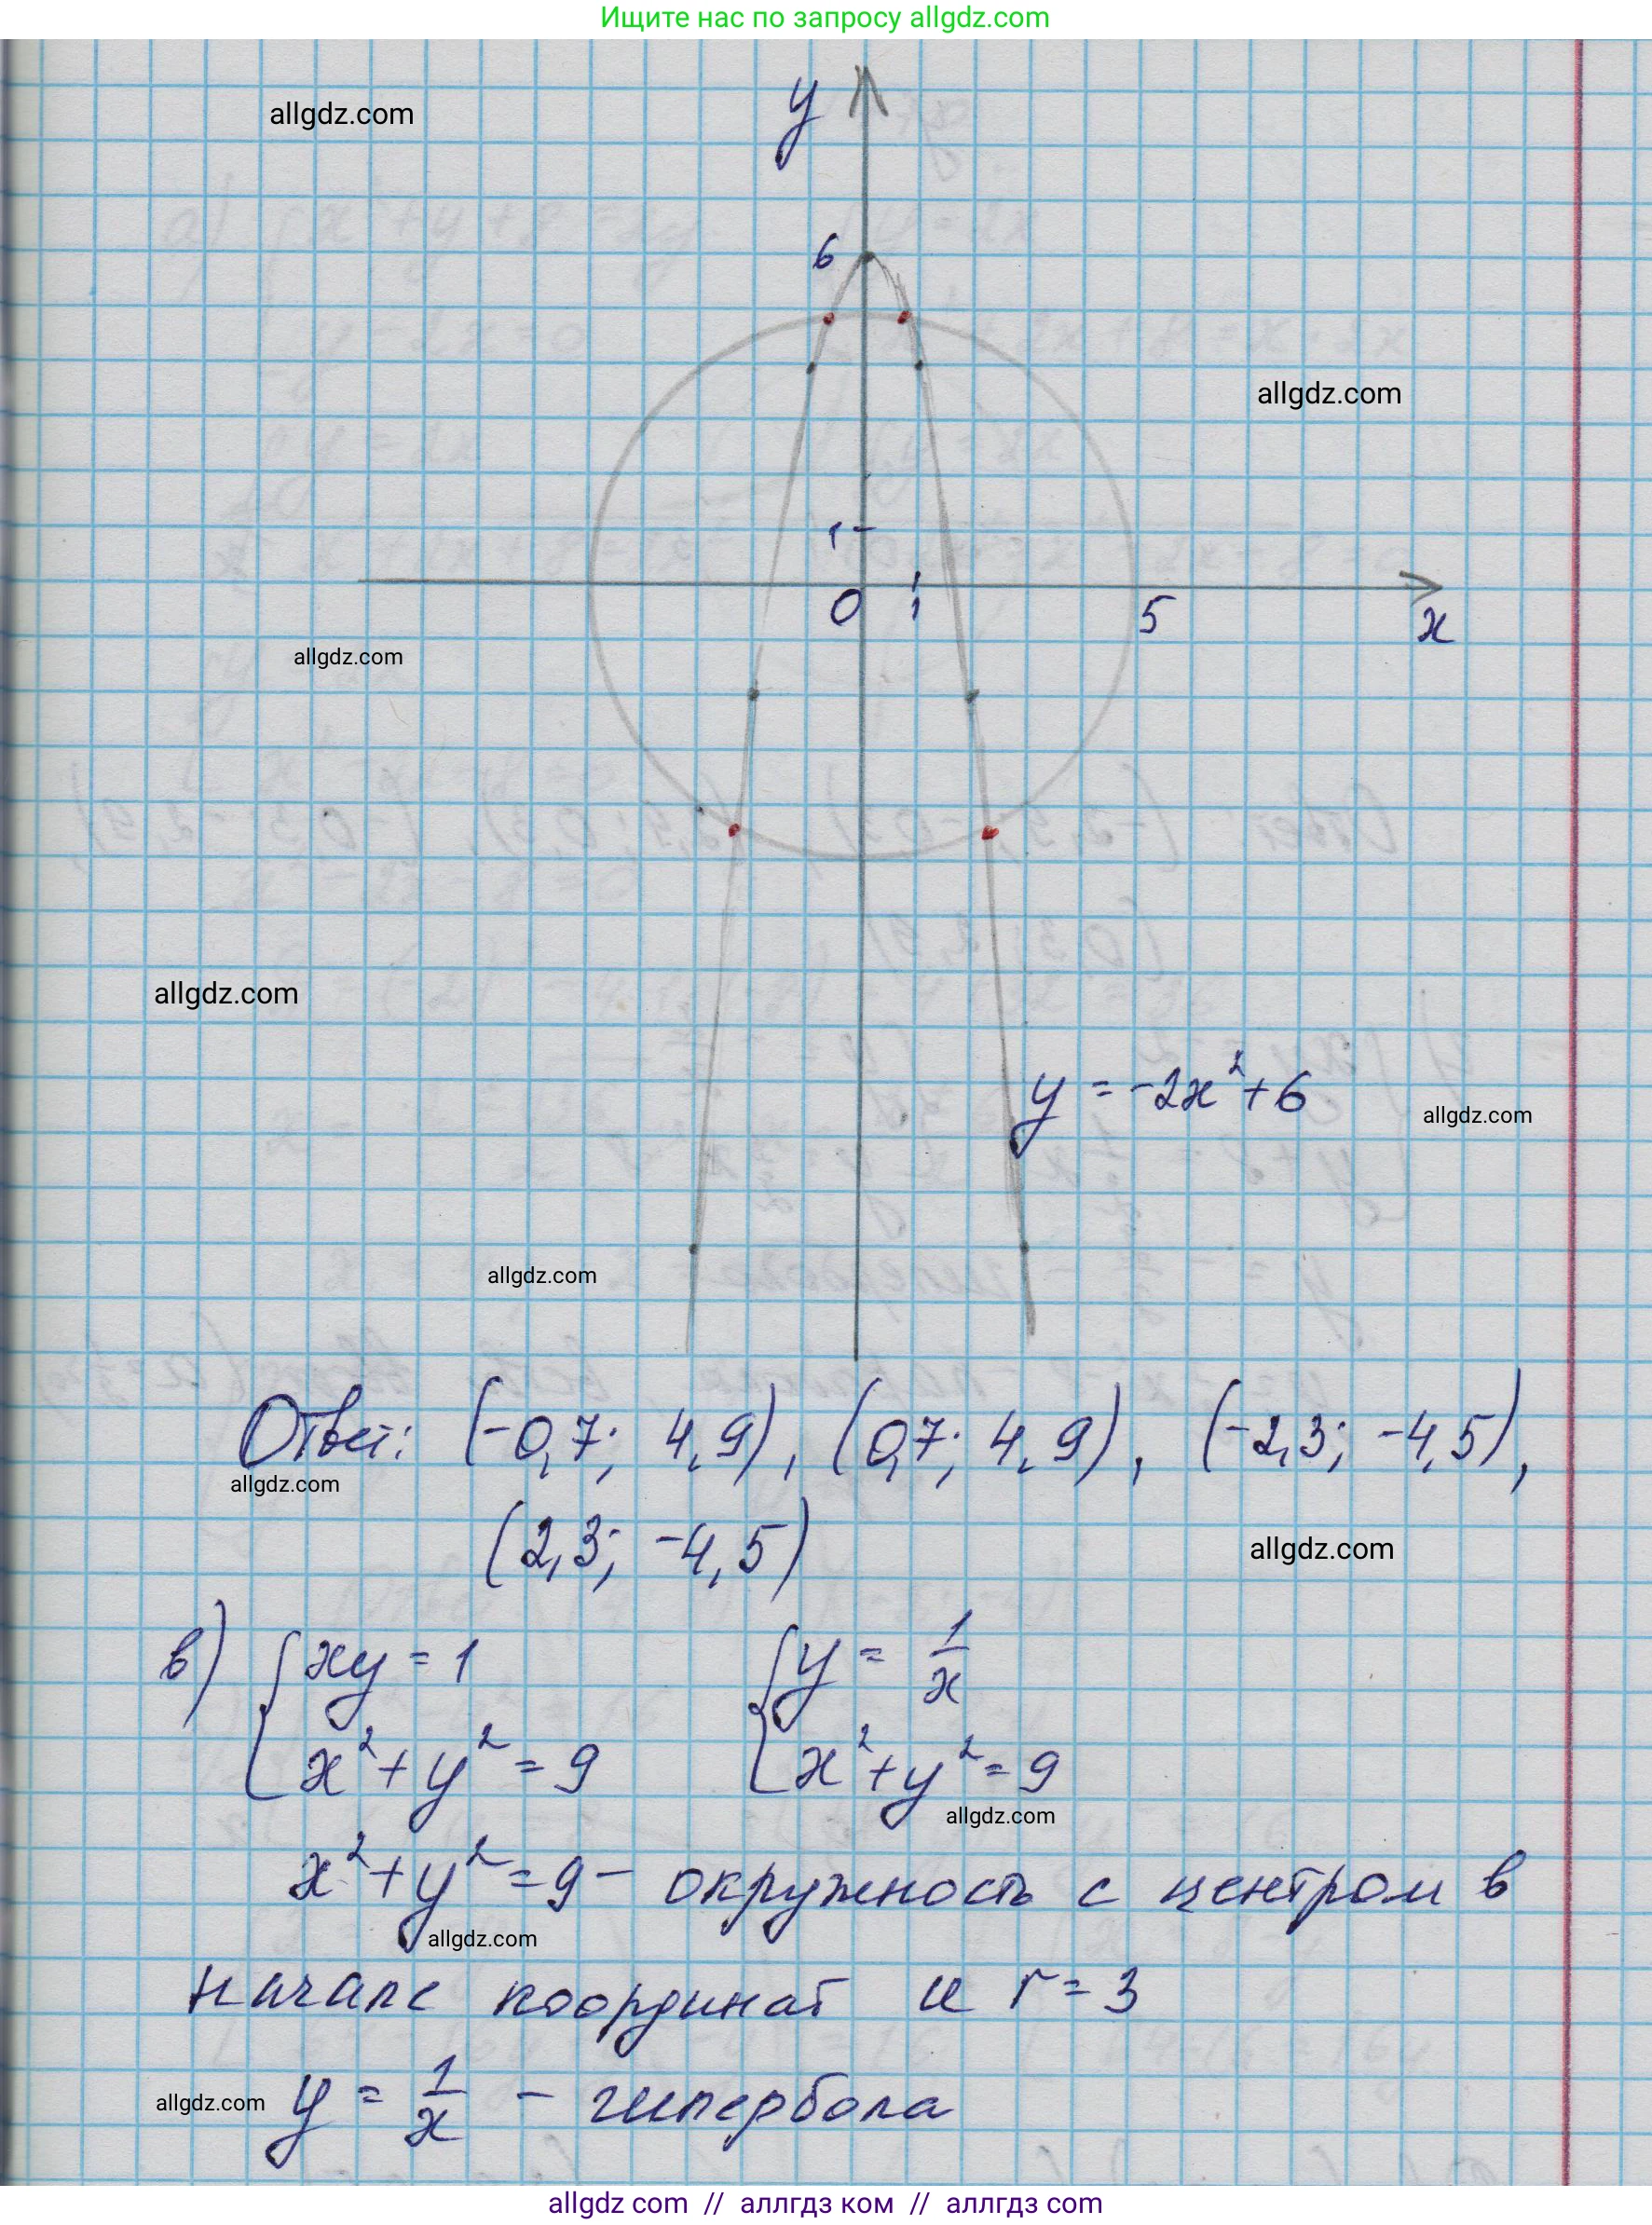 Ищите нас по запросу allgdz.com
y
allgdz.com
6
allgdz.com
1
0 1 5
x
allgdz.com
allgdz.com
y = -2x² + 6
allgdz.com
allgdz.com
Ответ: (-0,7; 4,9), (0,7; 4,9), (-2,3; -4,5),
allgdz.com
(2,3; -4,5)
allgdz.com
в) { xy = 1 { y = 1/x
x² + y² = 9 x² + y² = 9
allgdz.com
x² + y² = 9 - окружность с центром в
allgdz.com
начале координат и r = 3
allgdz.com y = 1/x - гипербола
allgdz com // аллгдз ком // аллгдз com